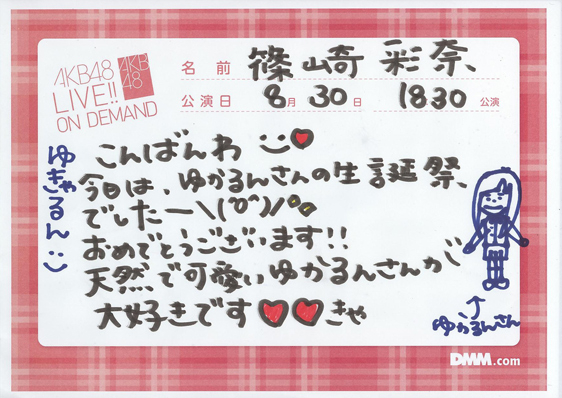 AKB48
LIVE!!
ON DEMAND
AKB
48
名前 篠崎彩奈
公演日 8月30日 18:30公演
こんばんわ
今日は、ゆかるんさんの生誕祭
でしたー\(^o^)/
おめでとうございます!!
天然で可愛いゆかるんさんが
大好きです♥♥きゃ
ゆきゃるん:)
↑
ゆかるんさん
DMM.com